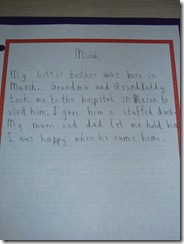 Micah
My little brother was born in
Marsh. Grandma and Granddaddy
took me to the hospital in Macon to
visit him. I gave him a stuffed duck.
My mom and dad let me hold him.
I was happy when he came home.